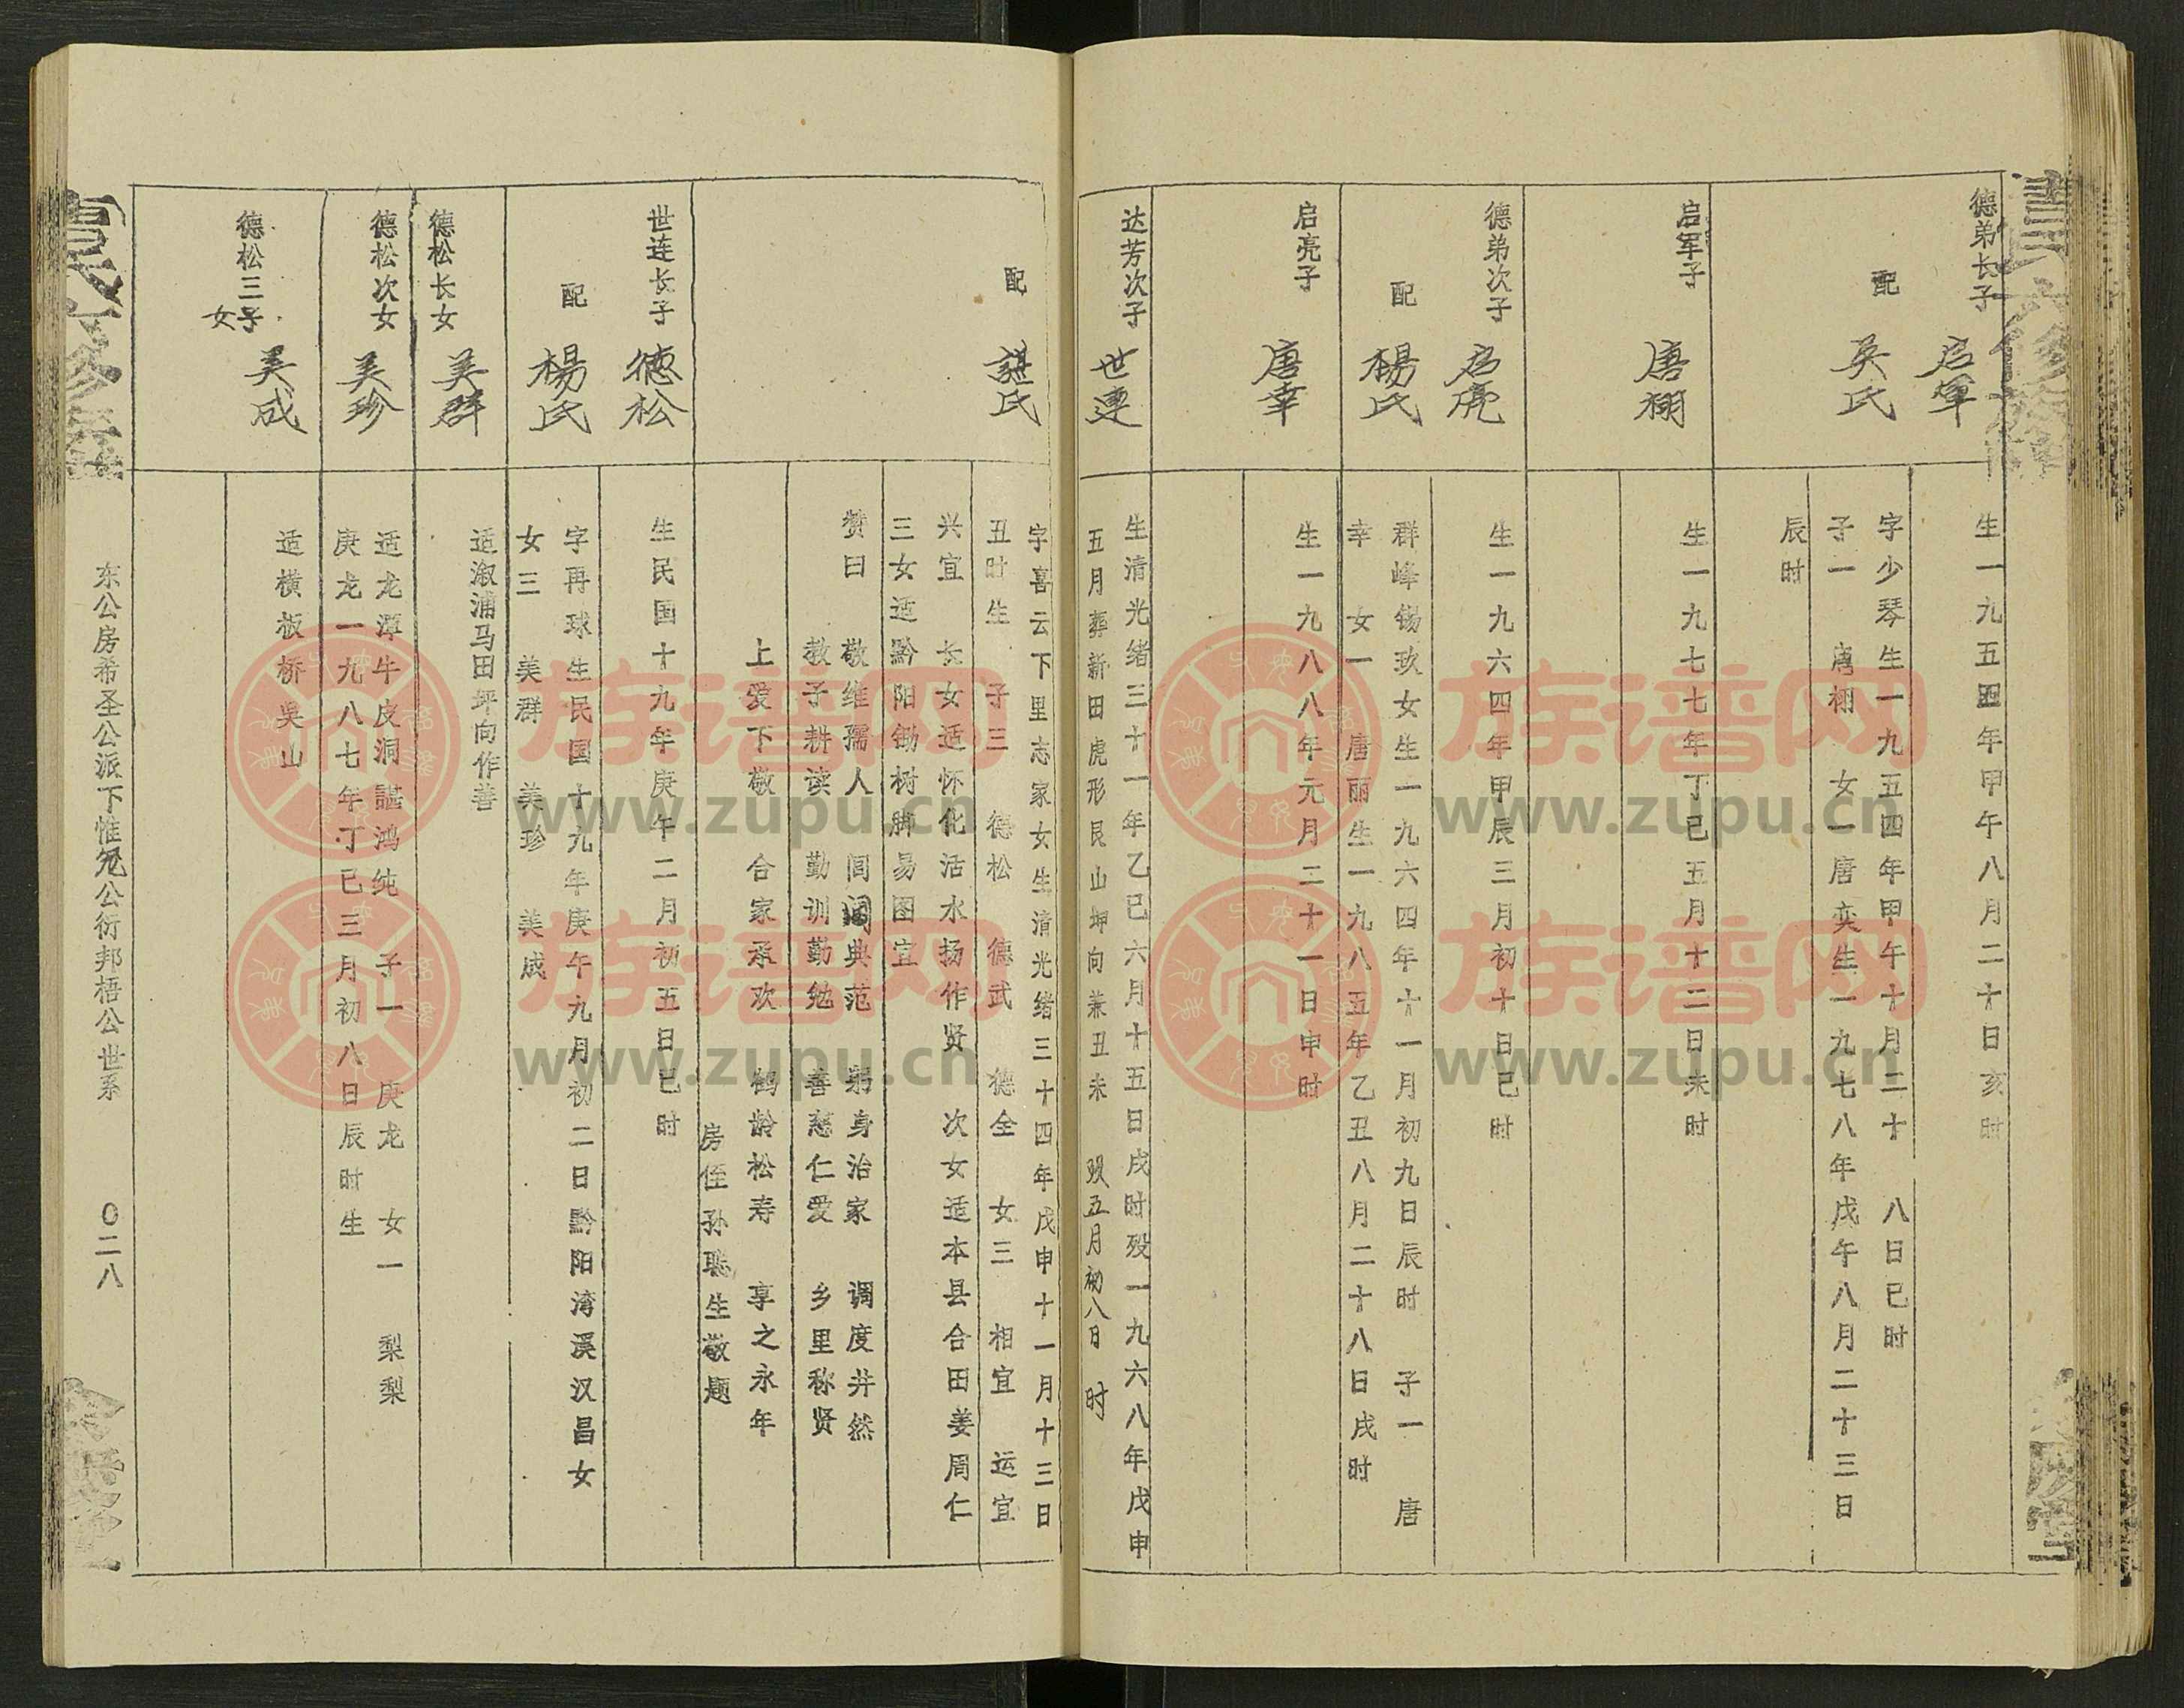 德弟长子
启军
生一九五四年甲午八月二十日亥时
配
吴氏
字少琴生一九五四年甲午十月二十 八日巳时
子一 唐栩 女一唐奕生一九七八年戊午八月二十三日
辰时
启军子
唐栩
生一九七七年丁巳五月十二日未时
德弟次子
启亮
生一九六四年甲辰三月初十日巳时
配
楊氏
群峰锡玖女生一九六四年十一月初九日辰时 子一 唐
幸 女一 唐丽生一九八五年乙丑八月二十八日戌时
启亮子
唐幸
生一九八八年元月二十一日申时
达芳次子
世連
生清光绪三十一年乙巳六月十五日戌时殁一九六八年戊申
五月葬新田虎形艮山坤向兼丑未 殁五月初八日 时
配
諶氏
字喜云下里志家女生清光绪三十四年戊申十一月十三日
丑时生 子三 德松 德武 德全 女三 相宜 运宜
兴宜 长女适怀化活水扬作贤 次女适本县合田姜周仁
三女适黔阳锄树脚易图宜
赞曰 敬维孺人 闾阃典范 躬身治家 调度井然
教子耕读 勤训勤勉 善慈仁爱 乡里称贤
上爱下敬 合家承欢 鹤龄松寿 享之永年
房侄孙聪生敬题
世连长子
德松
生民国十九年庚午二月初五日巳时
配
楊氏
字再球生民国十九年庚午九月初二日黔阳湾溪汉昌女
女三 美群 美珍 美成
德松长女
美群
适溆浦马田坪向作善
德松次女
美珍
适龙潭牛皮洞諶鸿纯 子一 庚龙 女一 梨梨
庚龙一九八七年丁巳三月初八日辰时生
德松三子
女
美成
适横板桥吳山
东公房希圣公派下惟公衍邦梧公世系
〇二八
族谱网
www.zupu.cn
族谱网
www.zupu.cn
族谱网
www.zupu.cn
族谱网
www.zupu.cn